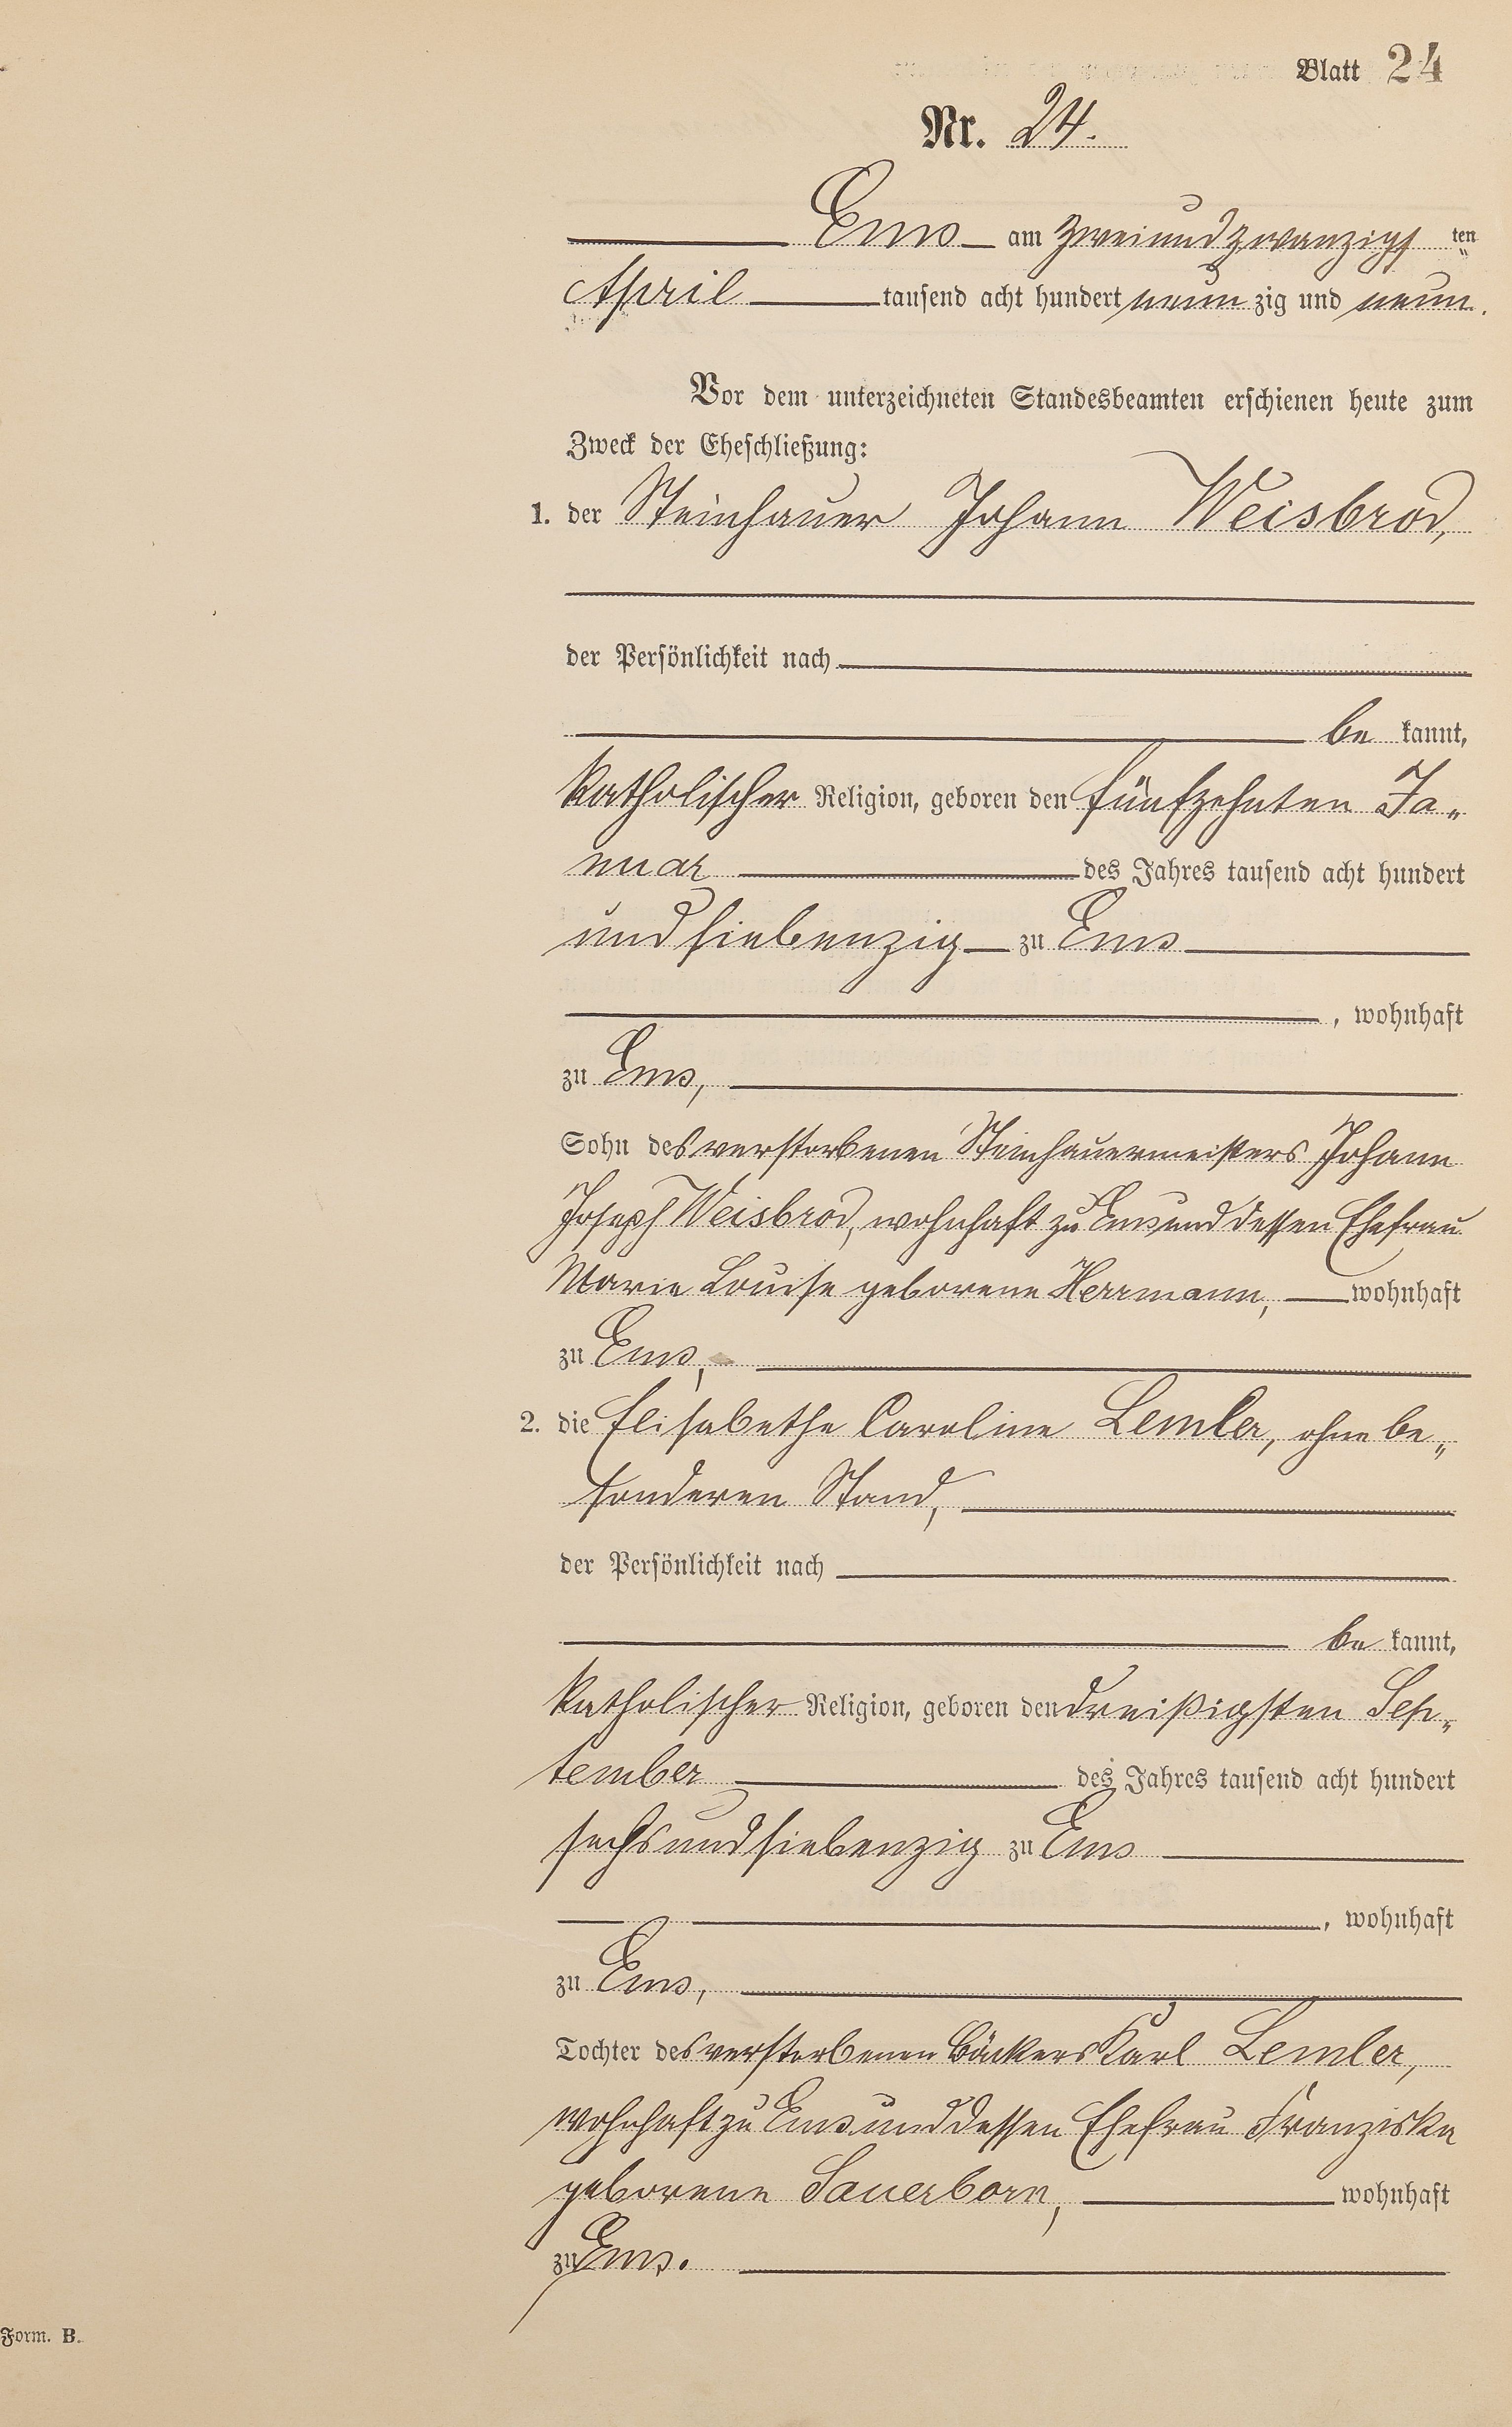 Blatt 24
Nr. 24.
Ems am zweiundzwanzigs ten
April tausend acht hundert neun zig und neun.
Vor dem unterzeichneten Standesbeamten erschienen heute zum
Zweck der Eheschließung:
1. der Steinhauer Johann Weisbrod,
der Persönlichkeit nach
be kannt,
katholischer Religion, geboren den fünfzehnten Ja„
nuar des Jahres tausend acht hundert
und siebenzig zu Ems
, wohnhaft
zu Ems,
Sohn des verstorbenen Steinhauermeisters Johann
Joseph Weisbrod, wohnhaft zu Ems und dessen Ehefrau
Marie Louise geborene Herrmann, wohnhaft
zu Ems,
2. die Elisabethe Caroline Lemler, ohne be„
sonderen Stand,
der Persönlichkeit nach
be kannt,
katholischer Religion, geboren den dreißigsten Sep„
tember des Jahres tausend acht hundert
sechsundsiebenzig zu Ems
, wohnhaft
zu Ems,
Tochter des verstorbenen Bäckers Karl Lemler,
wohnhaft zu Ems und dessen Ehefrau Franziska
geborene Sauerborn, wohnhaft
zu Ems.
Form. B.